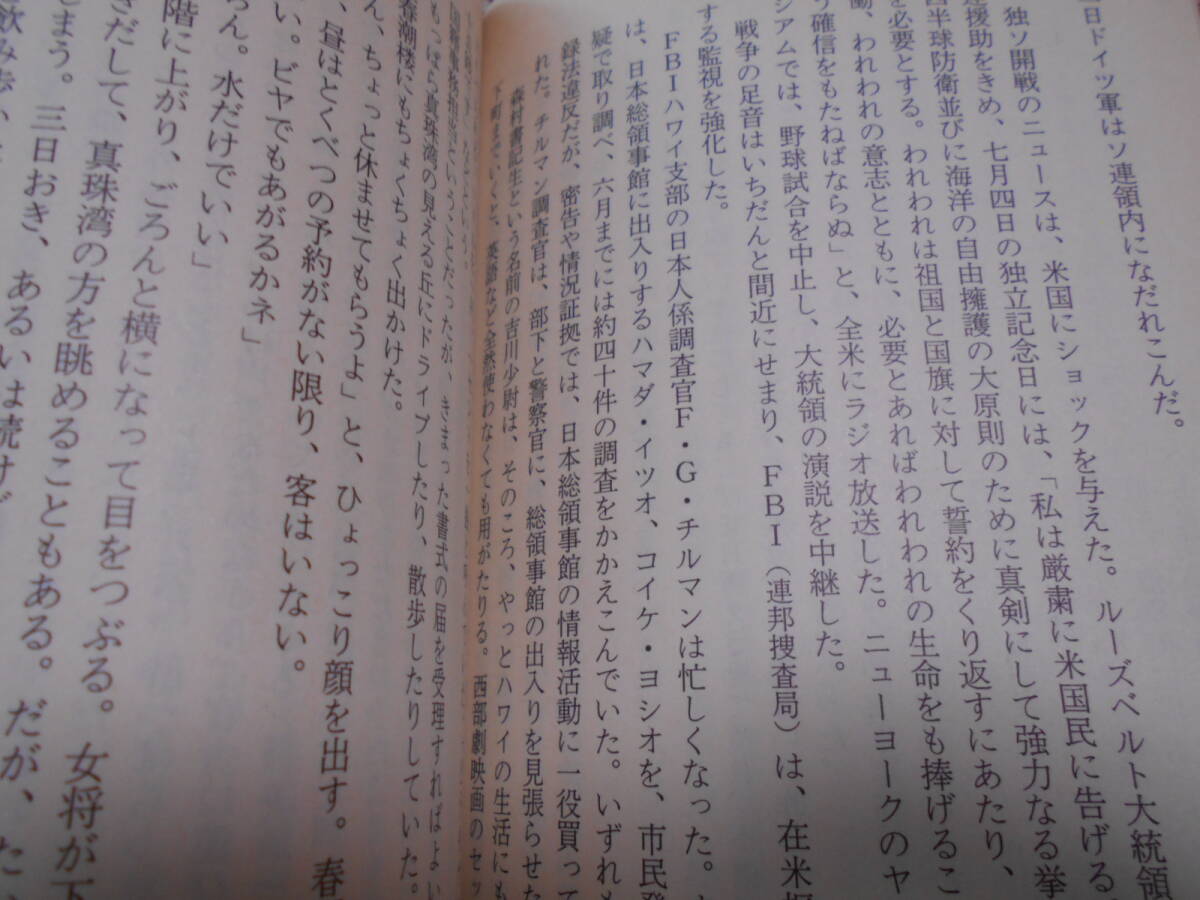 日ドイツ軍はソ連領内になだれこんだ。
独ソ開戦のニュースは、米国にショックを与えた。ルーズベルト大統領
連援助をきめ、七月四日の独立記念日には、「私は厳粛に米国民に告げる
四半球防衛並びに海洋の自由擁護の大原則のために真剣にして強力なる挙
を必要とする。われわれは祖国と国旗に対して誓約をくり返すにあたり、
働、われわれの意志とともに、必要とあればわれわれの生命をも捧げるこ
う確信をもたねばならぬ」と、全米にラジオ放送した。ニューヨークのヤ
シアムでは、野球試合を中止し、大統領の演説を中継した。
戦争の足音はいちだんと間近にせまり、FBI（連邦捜査局）は、在米
する監視を強化した。
FBIハワイ支部の日本人係調査官F・G・チルマンは忙しくなった。
は、日本総領事館に出入りするハマダ・イツオ、コイケ・ヨシオを、市民登
疑で取り調べ、六月までには約四十件の調査をかかえこんでいた。いずれも
録法違反だが、密告や情況証拠では、日本総領事館の情報活動に一役買って
れた。チルマン調査官は、部下と警察官に、総領事館の出入りを見張らせた
森村書記生という名前の吉川少尉は、そのころ、やっとハワイの生活にも
下町までいくと、英語など全然使わなくても用がたりる。西部劇映画のセッ
ということだったが、きまった書式の届を受理すればよい
もっぱら真珠湾の見える丘にドライブしたり、散歩したりしていた。
春潮楼にもちょくちょく出かけた。
ん、ちょっと休ませてもらうよ」と、ひょっこり顔を出す。春
、昼はとくべつの予約がない限り、客はいない。
い。ビヤでもあがるかネ」
ろん。水だけでいい」
階に上がり、ごろんと横になって目をつぶる。女将が下
きだして、真珠湾の方を眺めることもある。だが、た
しまう。三日おき、あるいは続けざ
飲み歩い